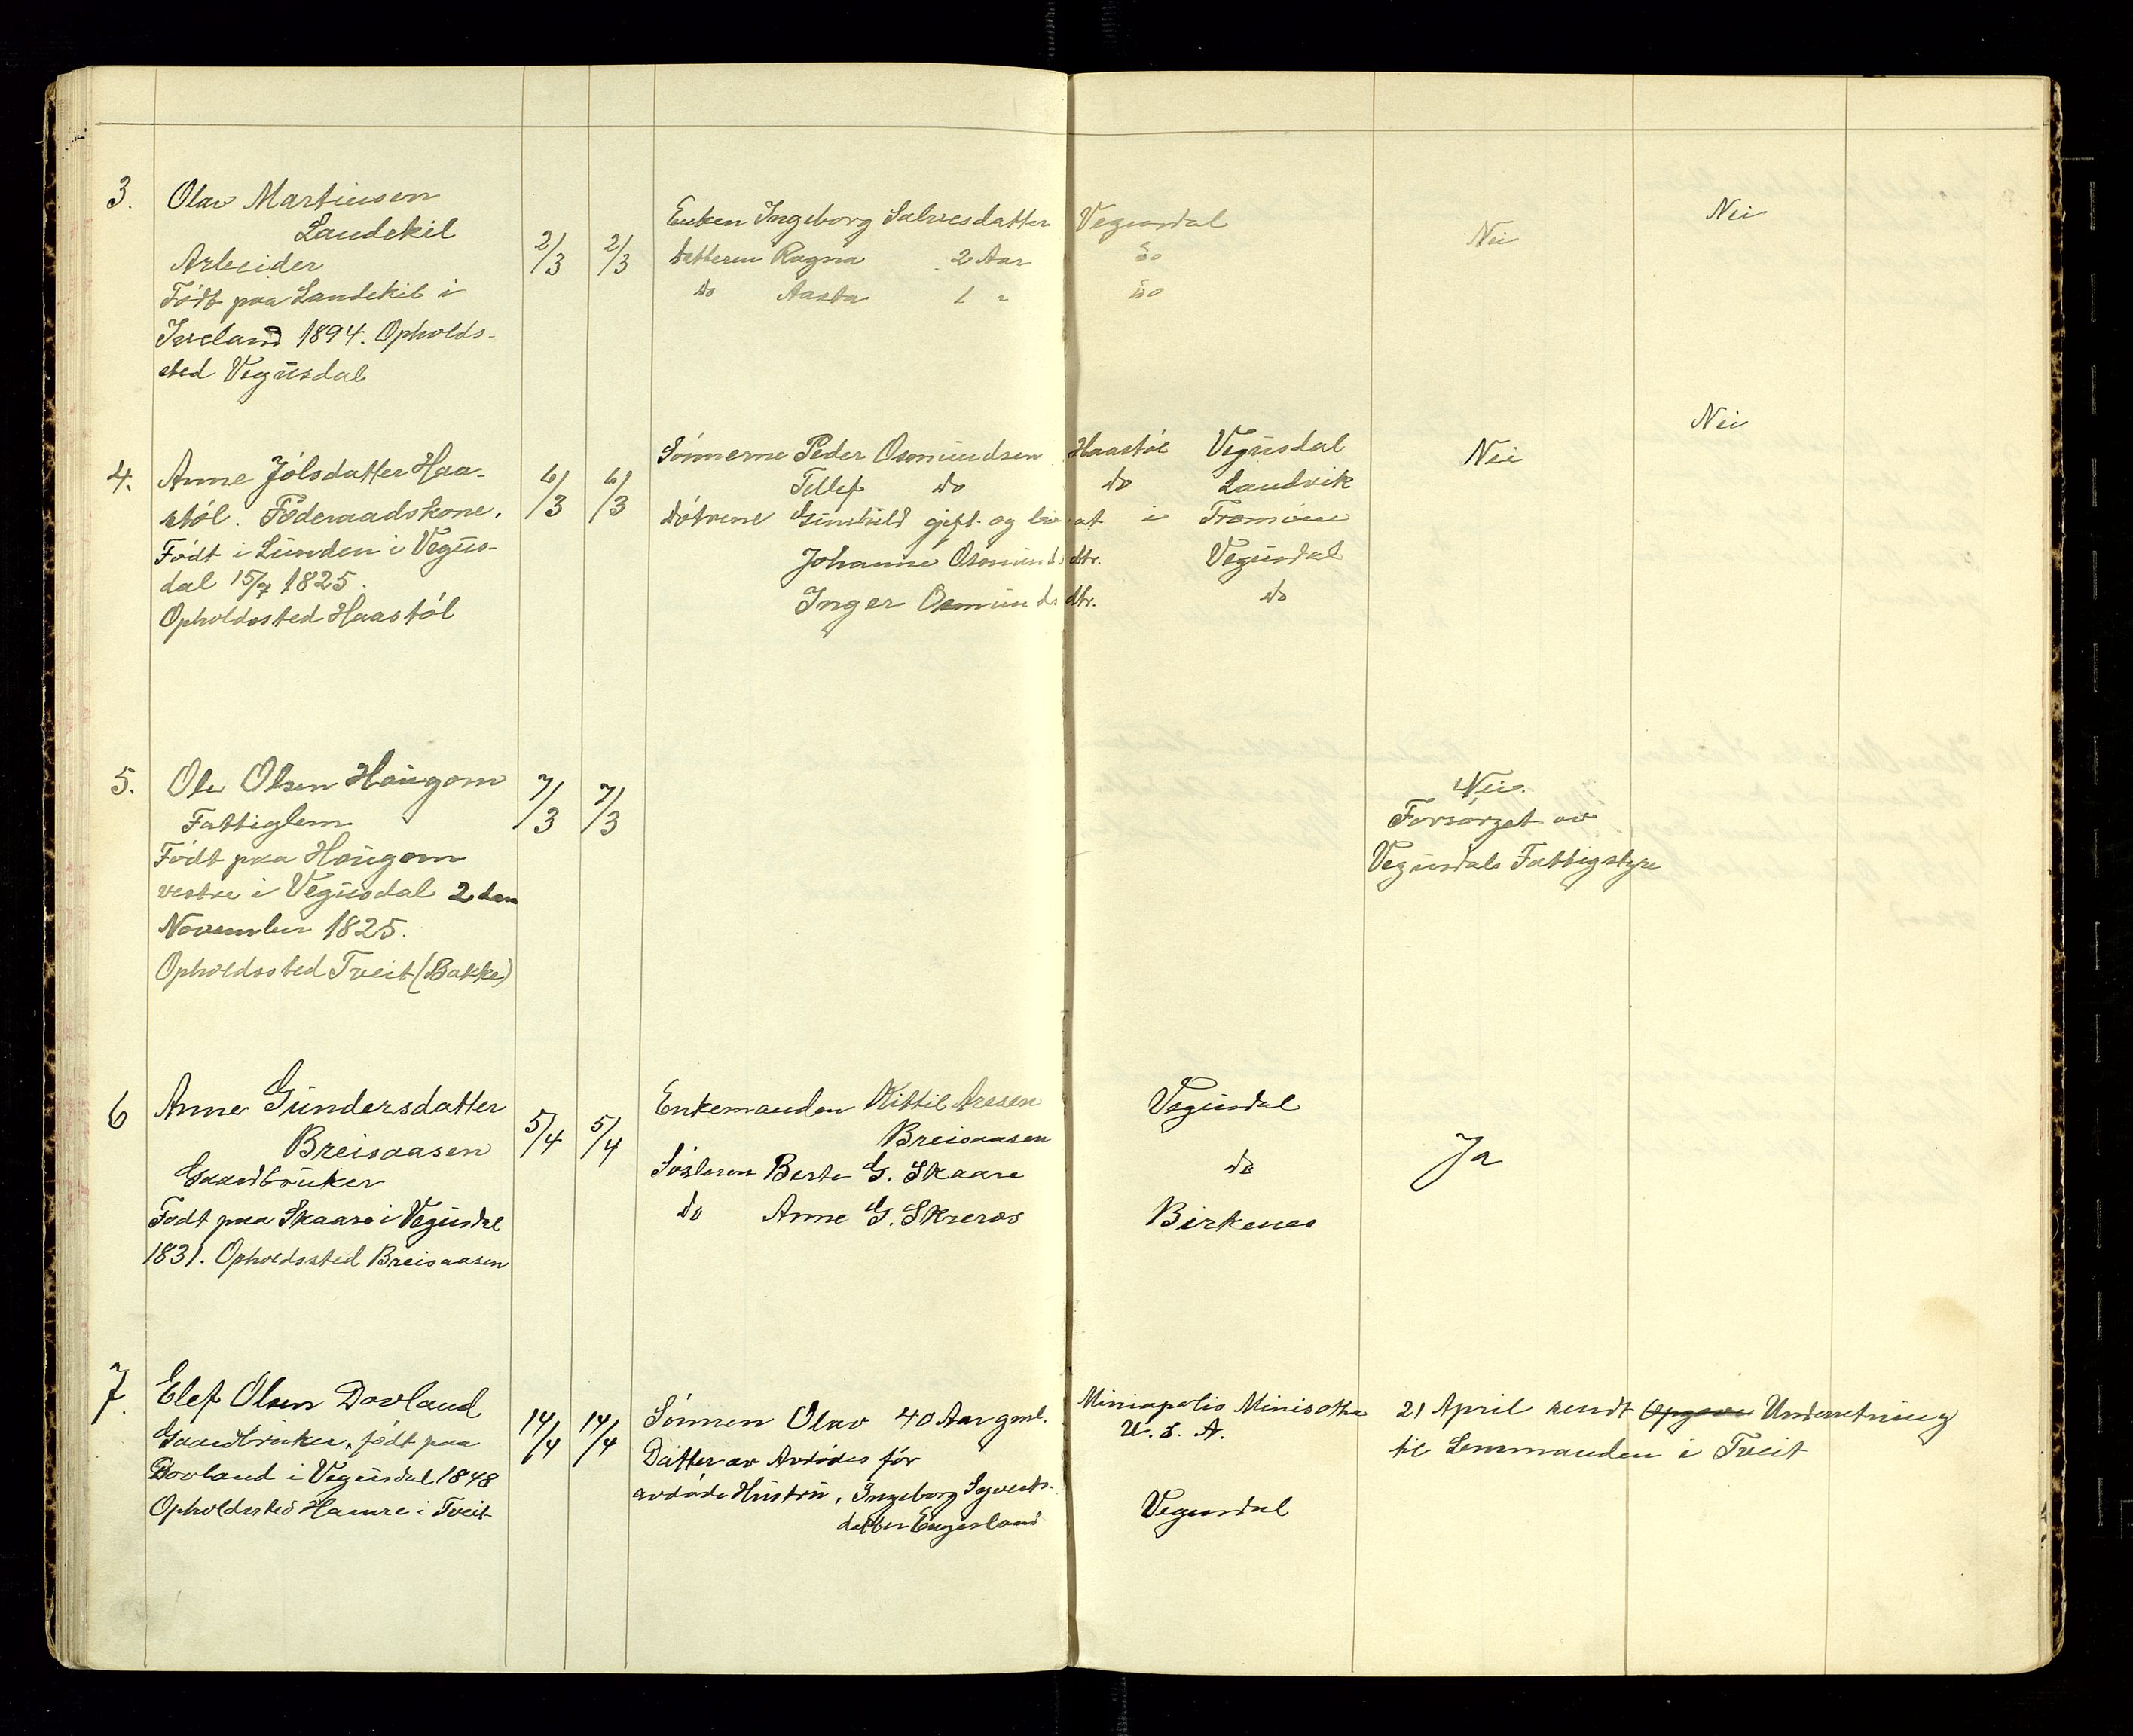 3. Olav Martinsen
Landekil
Arbeider
Født paa Landekil i
Iveland 1894. Opholds-
sted Vegusdal
2/3 2/3
Enken Ingeborg Salvesdatter Vegusdal
Datteren Ragna 2 Aar Do
Do Aasta 1 " Do
Nei
Nei
4. Anne Jólsdatter Haa-
stól. Føderaadskone.
Født i Lunden i Vegus-
dal 15/7 1825.
Opholdssted Haastól
6/3 6/3
Sønnerne Peder Osmundsen Haastól Vegusdal
Tellef Do Do Landvik
Døtrene Gunhild gift og bosat i Tromøen
Johanne Osmundsdtr. Vegusdal
Inger Osmundsdtr. Do
Nei
Nei
5. Ole Olsen Haugom
Fattiglem
Født paa Haugom
vestre i Vegusdal 2 den
November 1825.
Opholdssted Tveit (Bakke)
7/3 7/3
Nei.
Forsørget av
Vegusdals Fattigstyre
6 Anne Gundersdatter
Breisaasen
Gaardbruker
Født paa Skaare i Vegusdal
1831. Opholdssted Breisaasen
5/4 5/4
Enkemanden Kittil Aresen Vegusdal
Breisaasen
Søsteren Berte G. Skaare do
Do Anne G. Skreros Birkenes
Ja
7. Elef Olsen Dovland
Gaardbruker, født paa
Dovland i Vegusdal 1848
Opholdssted Hamre i Tveit
14/4 14/4
Sønnen Olav 40 Aar gml. Miniapolis Minisotha
U. S. A.
Datter av Avdødes før
avdøde Hustru, Ingeborg Syverts-
datter Engesland Vegusdal
21 April sendt Opgave Underretning
til Lensmanden i Tveit